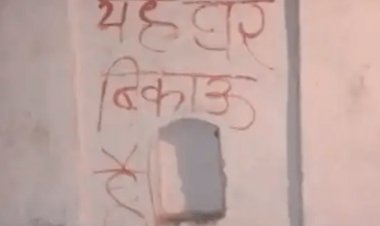 यह घर
बिकाऊ
है